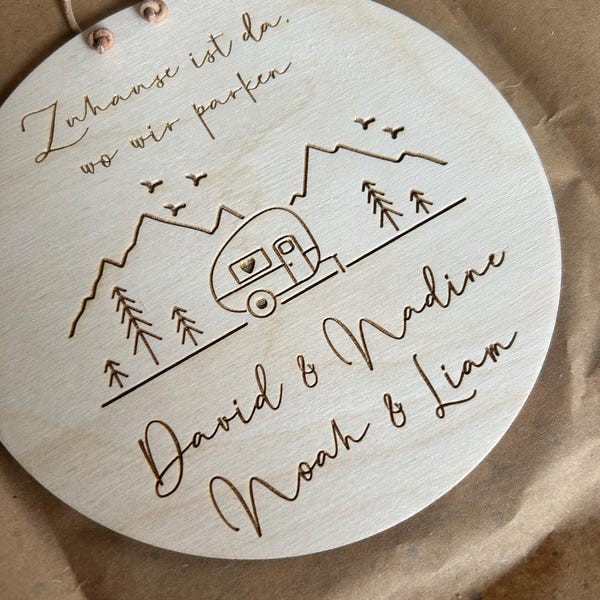 Zuhause ist da,
wo wir parken
David & Nadine
Noah & Liam